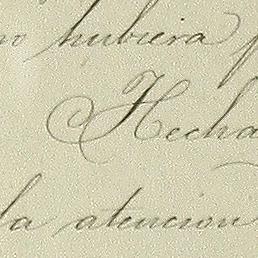 no hubiera
Hecha
la atencion